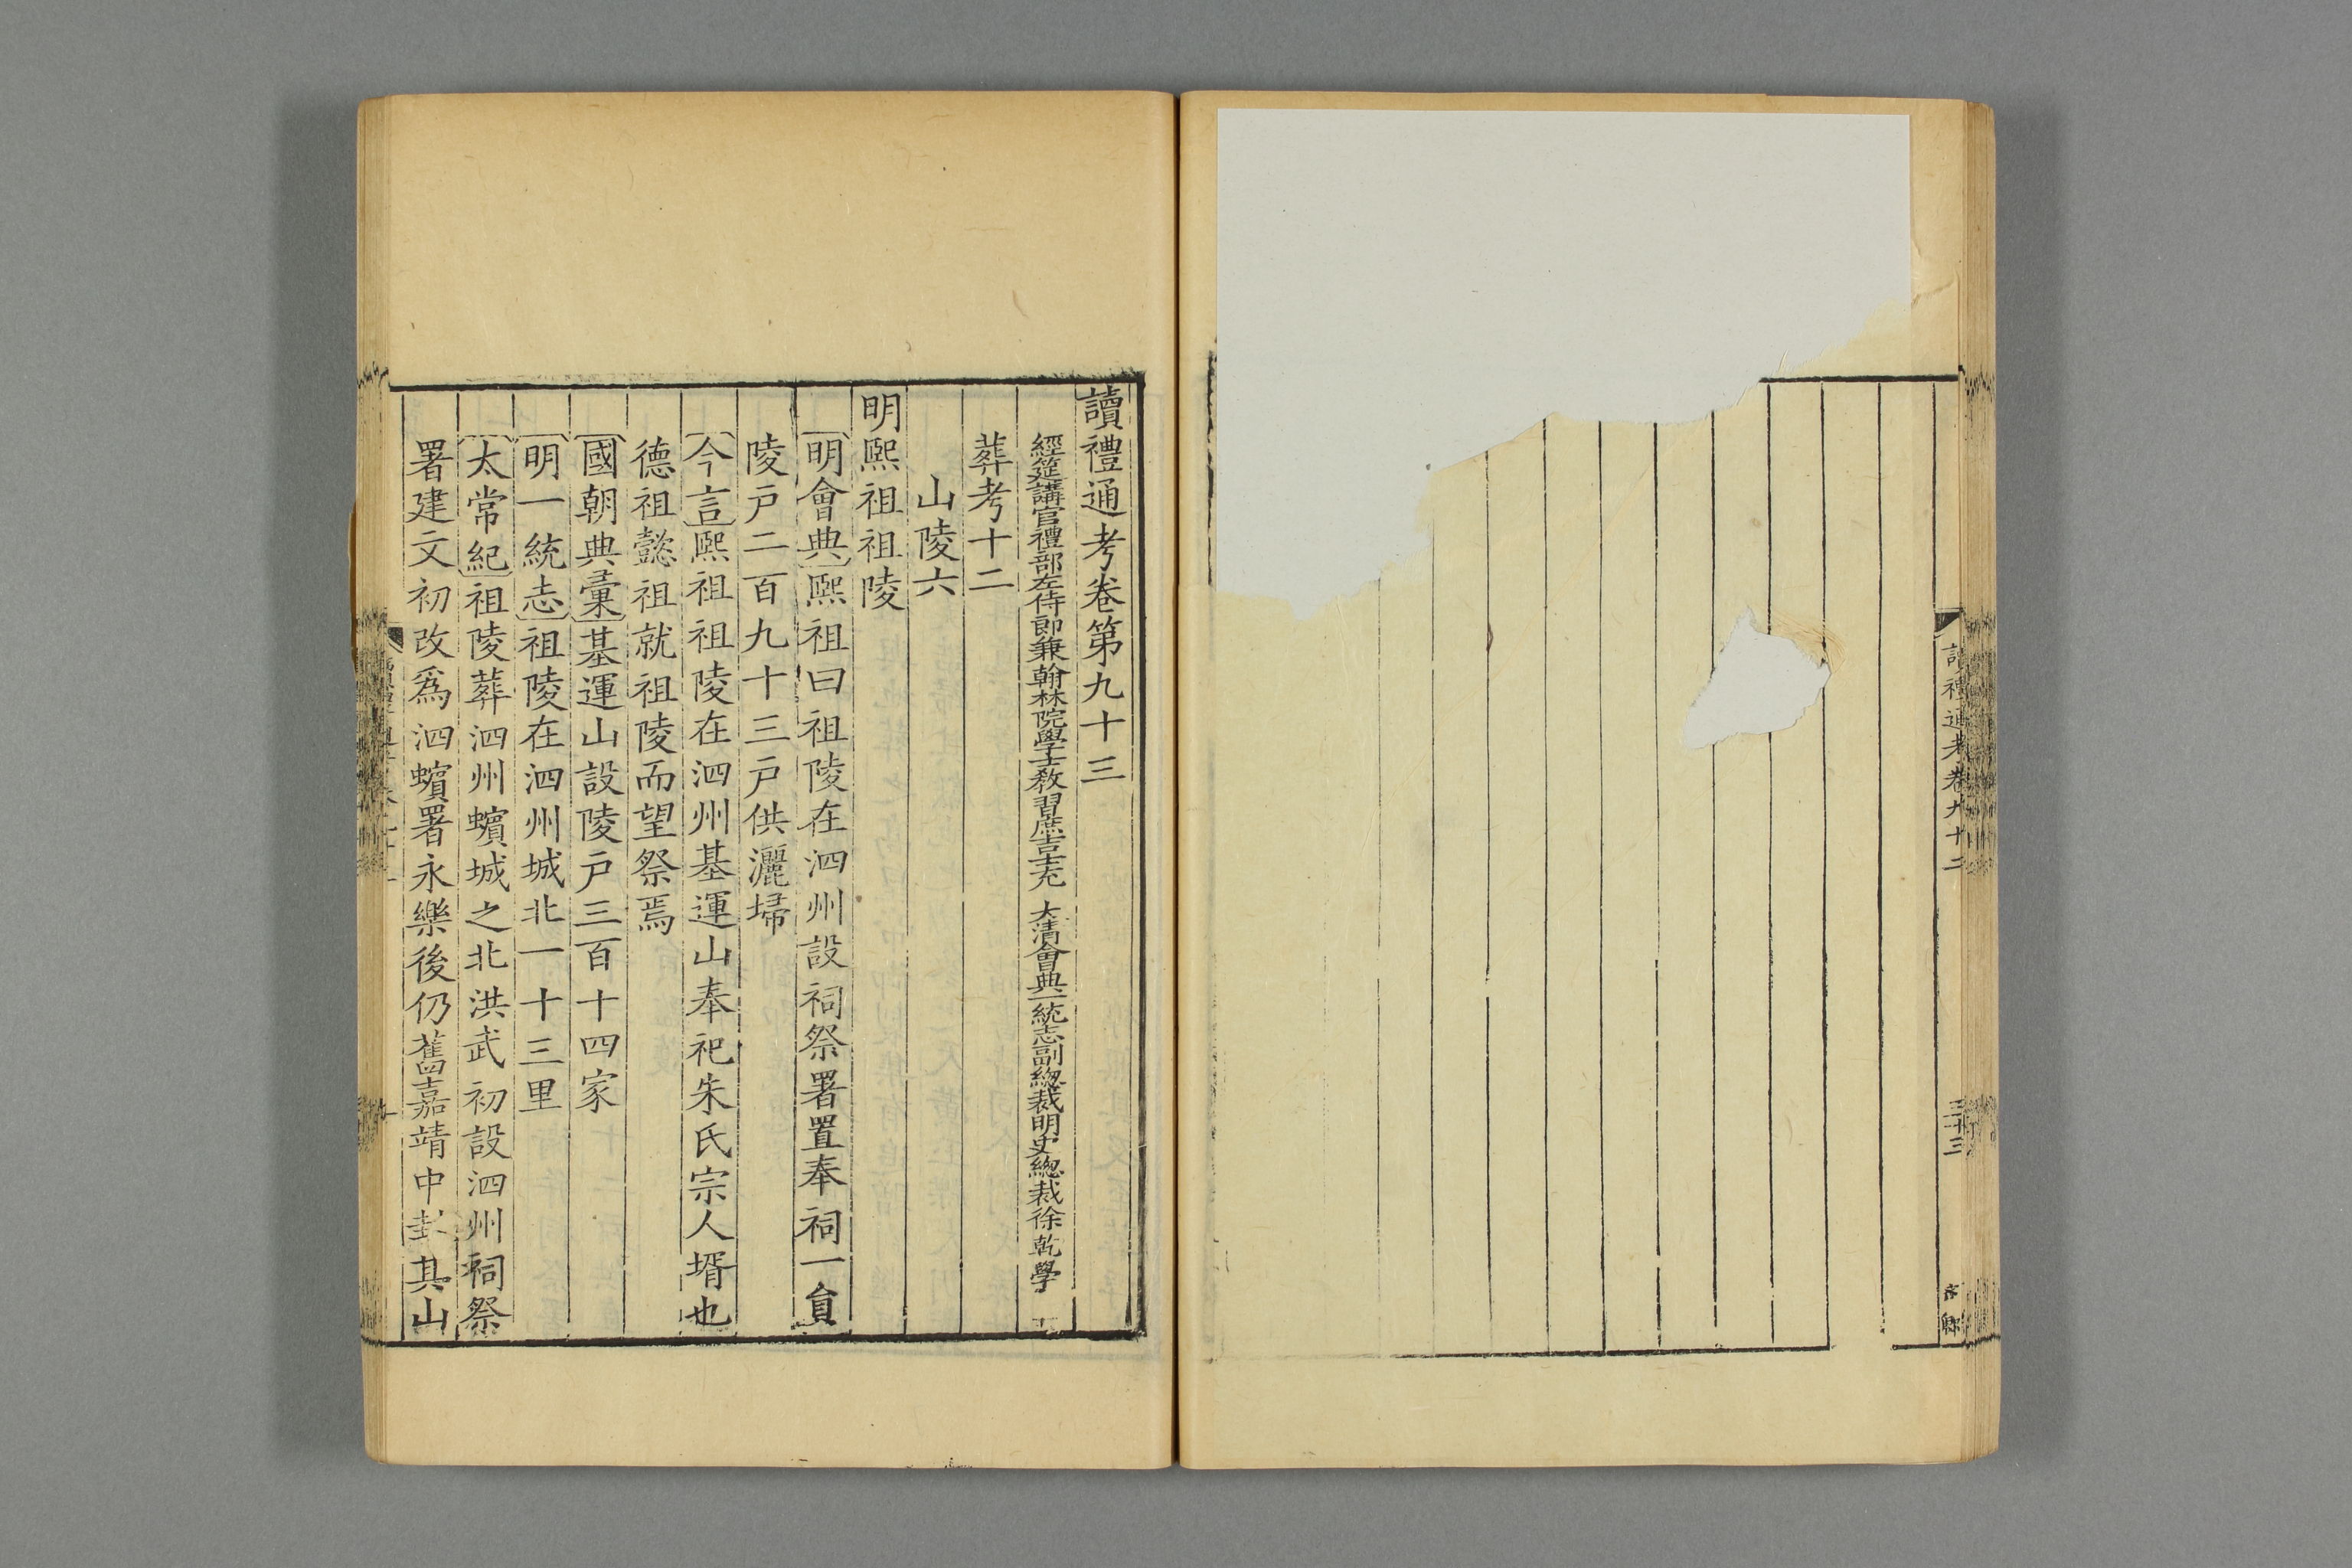 讀禮通考卷九十二
三十三
讀禮通考卷第九十三
經筵講官禮部左侍郎兼翰林院學士教習庶吉士充　大清會典一統志副總裁明史總裁徐乾學
葬考十二
山陵六
明熙祖祖陵
明會典熙祖曰祖陵在泗州設祠祭署置奉祠一員
陵戶二百九十三戶供灑埽
今言熙祖祖陵在泗州基運山奉祀朱氏宗人壻也
德祖懿祖就祖陵而望祭焉
國朝典彙基運山設陵戶三百十四家
明一統志祖陵在泗州城北一十三里
太常紀祖陵葬泗州蠙城之北洪武初設泗州祠祭
署建文初改爲泗蠙署永樂後仍舊嘉靖中封其山